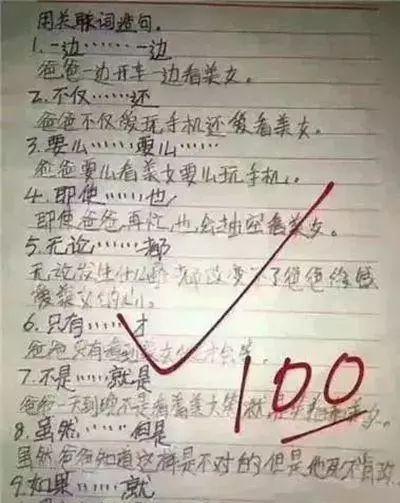 用关联词造句.
1.一边……一边
爸爸一边开车一边看美女。
2.不仅……还
爸爸不仅爱玩手机还爱看美女。
3.要么……要么……
爸爸要么看美女要么玩手机。
4.即使……也
即使爸爸再忙,也会抽空看美女。
5.无论……都
无论发生什么都改变不了爸爸
爱美女的心。
6.只有……才
爸爸只有看到美女才会笑。
7.不是……就是
爸爸一天到晚不是看着美女笑就是
100
8.虽然……但是
虽然爸爸知道这样是不对的但是他死不肯改
9.如果……就